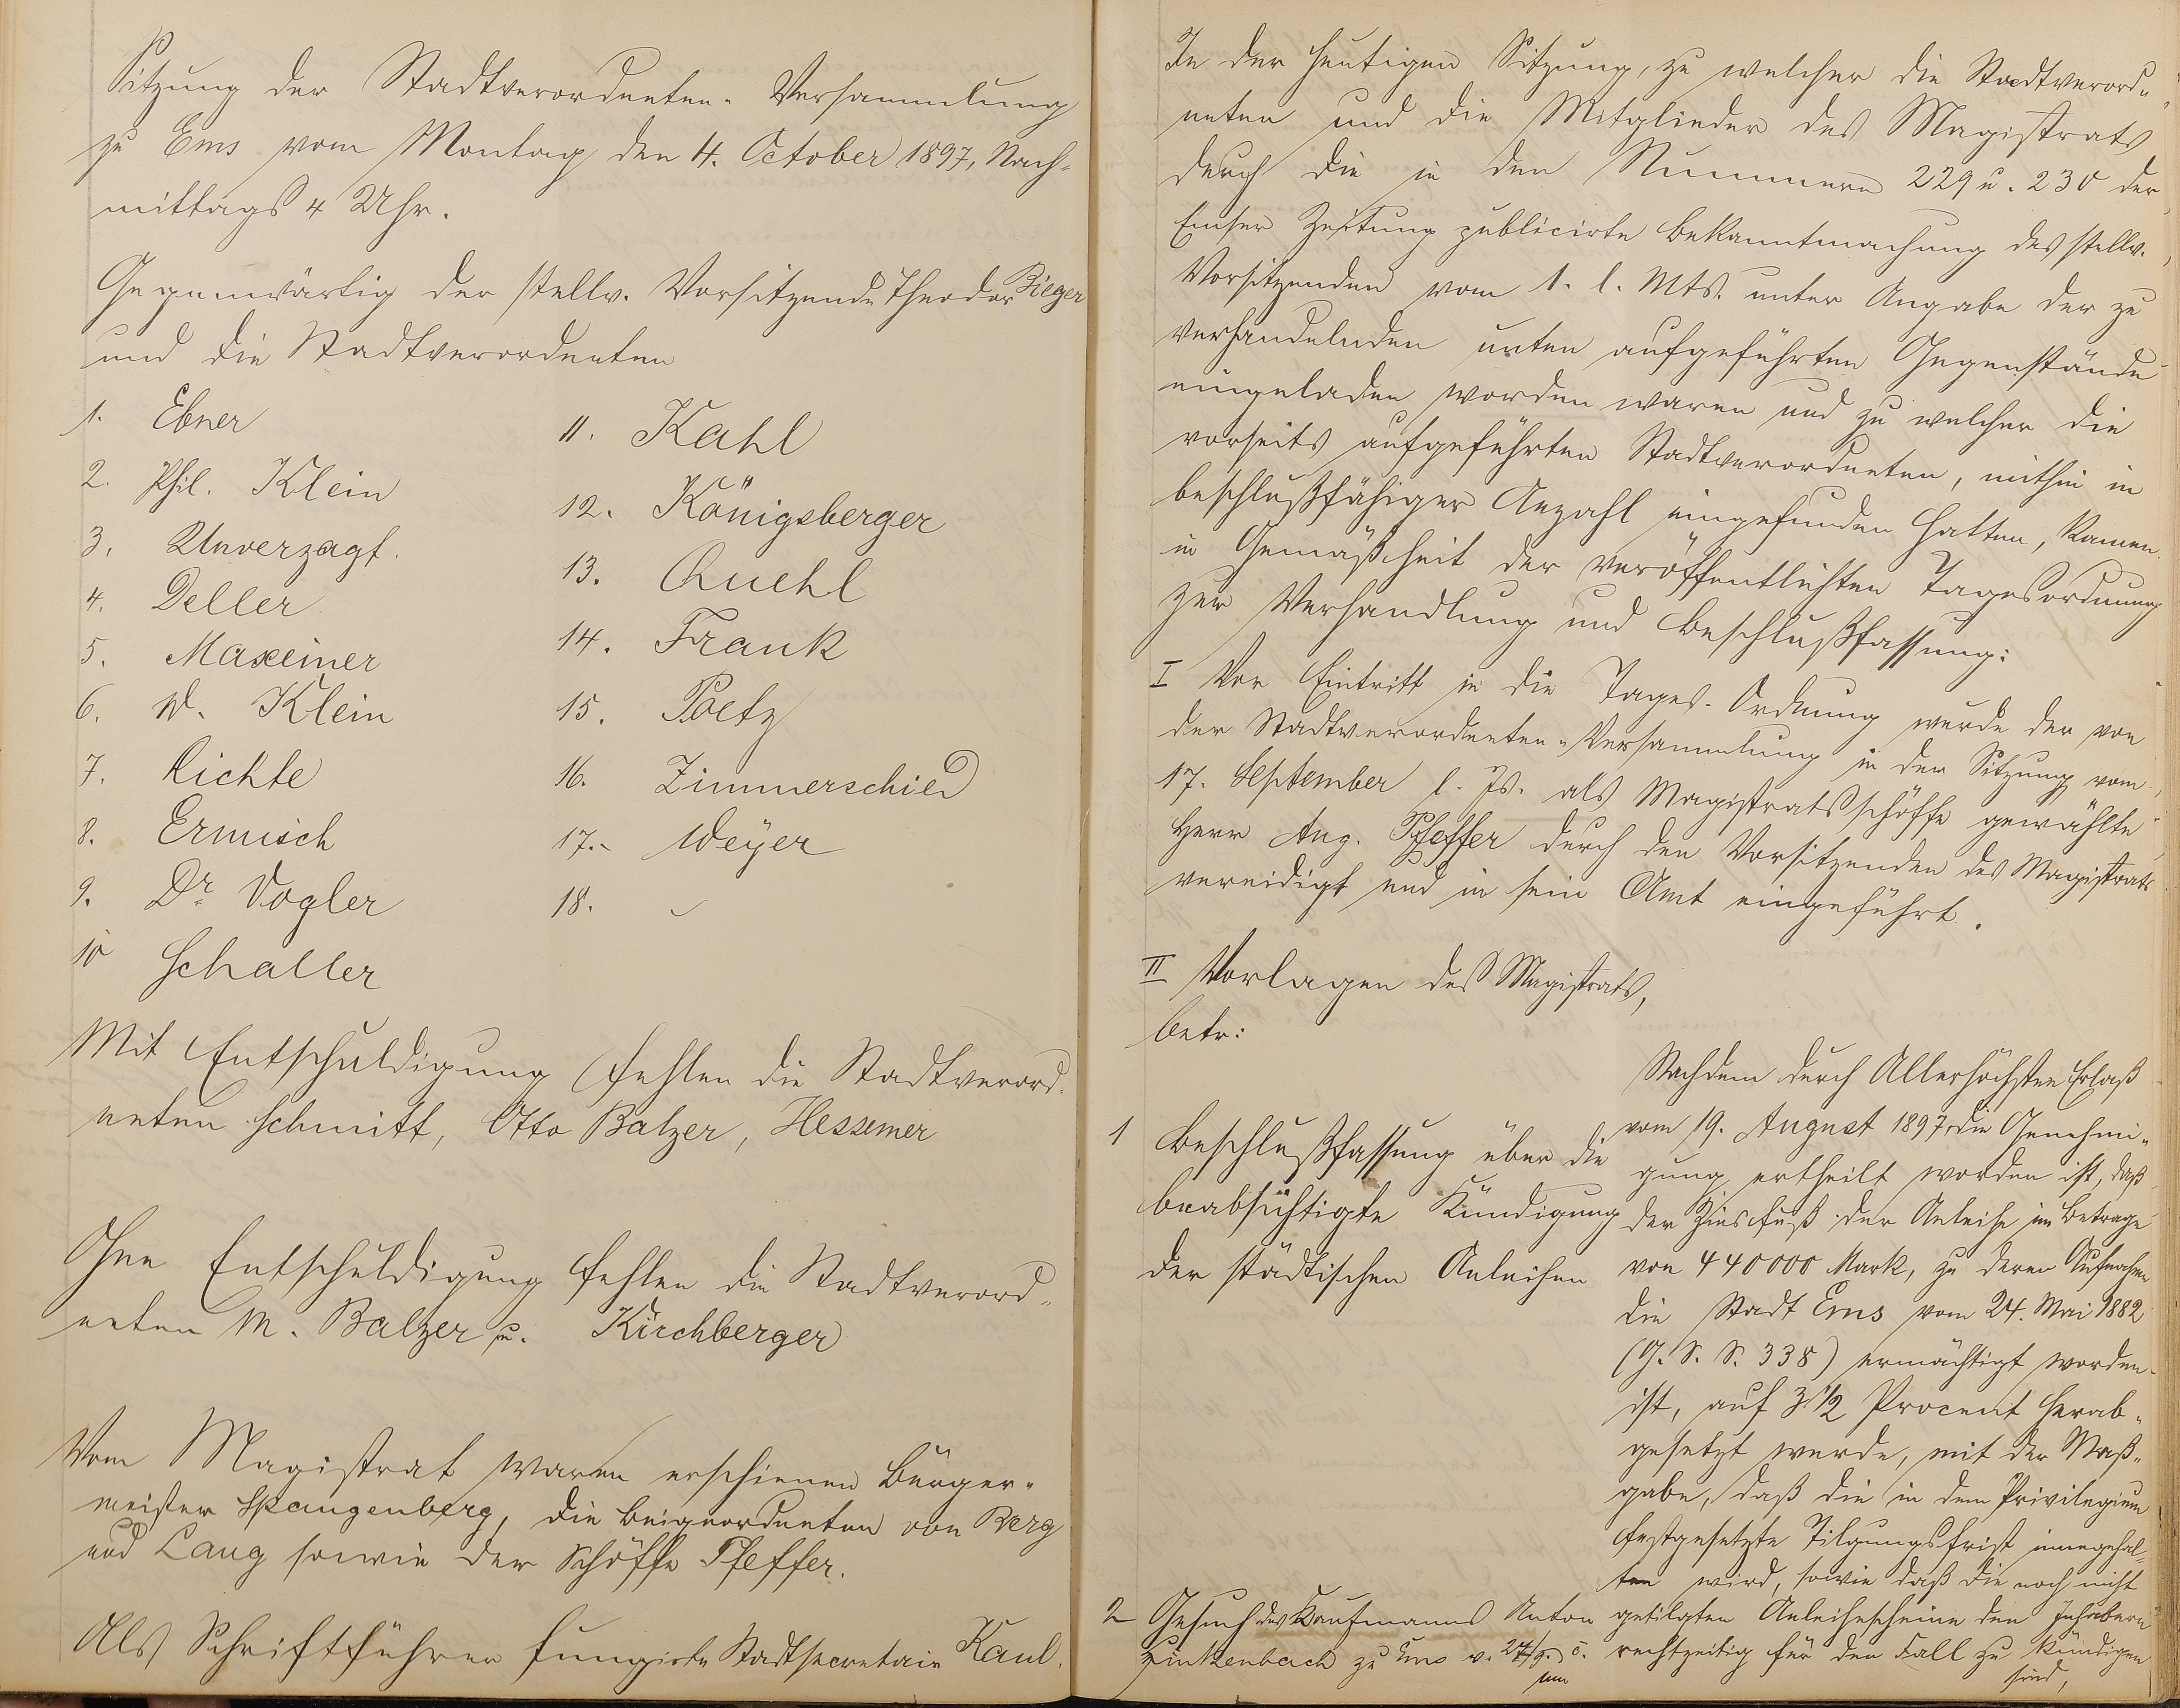 Sitzung der Stadtverordneten-Versammlung
zu Ems vom Montag den 4. October 1897, Nach-
mittags 4 Uhr.
Gegenwärtig der stellv. Vorsitzende Theodor Rieger
und die Stadtverordneten
1. Ebner
2. Phil. Klein
3. Unverzagt.
4. Deller
5. Maxeiner
6. W. Klein
7. Lichte
8. Ermisch
9. Dr Vogler
10 Schaller
11. Kahl
12. Königsberger
13. Quehl
14. Frank
15. Poetz
16. Zimmerschied
17.- Weyer
18. -
Mit Entschuldigung fehlen die Stadtverord-
neten Schmitt, Otto Balzer, Hessemer
Ohne Entschuldigung fehlen die Stadtverord-
neten M. Balzer u. Kirchberger
Vom Magistrat waren erschienen Bürger-
meister Spangenberg, die Beigeordneten von Berg
und Lang sowie der Schöffe Pfeffer.
Als Schriftführer fungirte Stadtsecretair Kaul.
In der heutigen Sitzung, zu welcher die Stadtverord-
neten und die Mitglieder des Magistrats
durch die in den Nummern 229 u. 230 der
Emser Zeitung publicirte Bekanntmachung des stellv.
Vorsitzenden vom 1. l. Mts. unter Angabe der zu
verhandelnden unten aufgeführten Gegenstände
eingeladen worden waren und zu welcher die
vorseits aufgeführten Stadtverordneten, mithin in
beschlußfähiger Anzahl eingefunden hatten, kamen
in Gemäßheit der veröffentlichten Tagesordnung
zur Verhandlung und Beschlußfassung:
I Vor Eintritt in die Tages-Ordnung wurde der von
der Stadtverordneten-Versammlung in der Sitzung vom
17. September l. Js. als Magistratsschöffe gewählte
Herr Aug. Pfeffer durch den Vorsitzenden des Magistrats
vereidigt und in sein Amt eingeführt.
II Vorlagen des Magistrats,
betr:
1 Beschlußfassung über die
beabsichtigte Kündigung
der städtischen Anleihen
Nachdem durch Allerhöchsten Erlaß
vom 19. August 1897 die Genehmi-
gung ertheilt worden ist, daß
der Zinsfuß der Anleihe im Betrage
von 440000 Mark, zu deren Aufnahme
die Stadt Ems vom 24. Mai 1882
(G. S. S. 338) ermächtigt worden
ist, auf 3 1/2 Procent herab-
gesetzt werde, mit der Maß-
gabe, daß die in dem Privilegium
festgesetzte Tilgungsfrist innegehal-
ten wird, sowie daß die noch nicht
getilgten Anleihescheine den Inhabern
rechtzeitig für den Fall zu kündigen
sind,
2 Gesuch des Kaufmanns Anton
Linkenbach zu Ems v. 27/9. c.
um